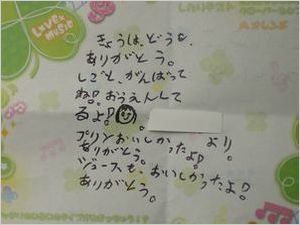 LOVE♪MUSIC
きょうは、どうも、
ありがとう。
しごと、がんばって
ね!おうえんして
るよ!
より。
プリンおいしかったよ!
ありがとう。
ジュースも、おいしかったよ!
ありがとう。